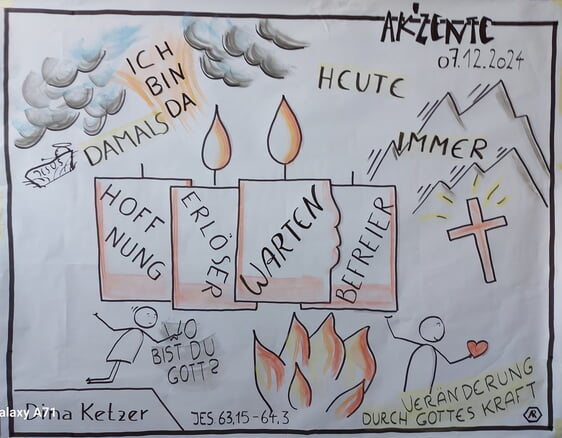 AKZENTE
07.12.2024
ICH
BIN
DA
HEUTE
DAMALS
IMMER
JESUS
HOFF
NUNG
ERLÖSER
WARTEN
BEFREIER
WO
BIST DU
GOTT?
VERÄNDERUNG
DURCH GOTTES KRAFT
Dina Ketzer
JES 63,15-64,3
AR
alaxy A71